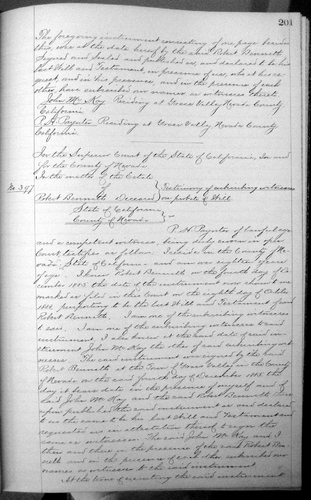 201
The foregoing instrument consisting of one page besides
this, was at the date hereof by the said Robert Bennett
Signed and Sealed and published as, and declared to be his
Last Will and Testament, in presence of us, who at his re-
quest and in his presence, and in the presence of each
other, have subscribed our names as witnesses thereto.
John McKay Residing at Grass Valley, Nevada County
California
P. H. Paynter Residing at Grass Valley, Nevada County
California
In the Superior Court of the State of California, In and
for the County of Nevada
In the matter of the Estate
of
No 397
Robert Bennett Deceased
Testimony of subscribing witness
on probate of Will
State of California
County of Nevada
P. H. Paynter of lawful age
and a competent witness, being duly sworn in open
Court testifies as follows. I reside in the County of Ne-
vada State of California and am over eighteen years
of age. I knew Robert Bennett on the fourth day of De-
cember 1883 the date of the instrument now shown me
marked as filed in this Court on the day of
188 purporting to be the Last Will and Testament of said
Robert Bennett. I am one of the subscribing witnesses
to said instrument. I also knew at the said date of said in-
strument John McKay the other of said subscribing wit-
nesses. The said instrument was signed by the said
Robert Bennett at the Town of Grass Valley in the County
of Nevada on the said fourth day of December 1883 the
day it bears date in the presence of myself and of
said John McKay and the said Robert Bennett there-
upon published the said instrument as and declared
to us the same to be his Last Will and Testament and
requested us in attestation thereof to sign the
same as witnesses. The said John McKay and I
then and there in the presence of the said Robert Ben-
nett and in the presence of each other subscribed our
names as witnesses to the said instrument
At the time of executing the said instrument